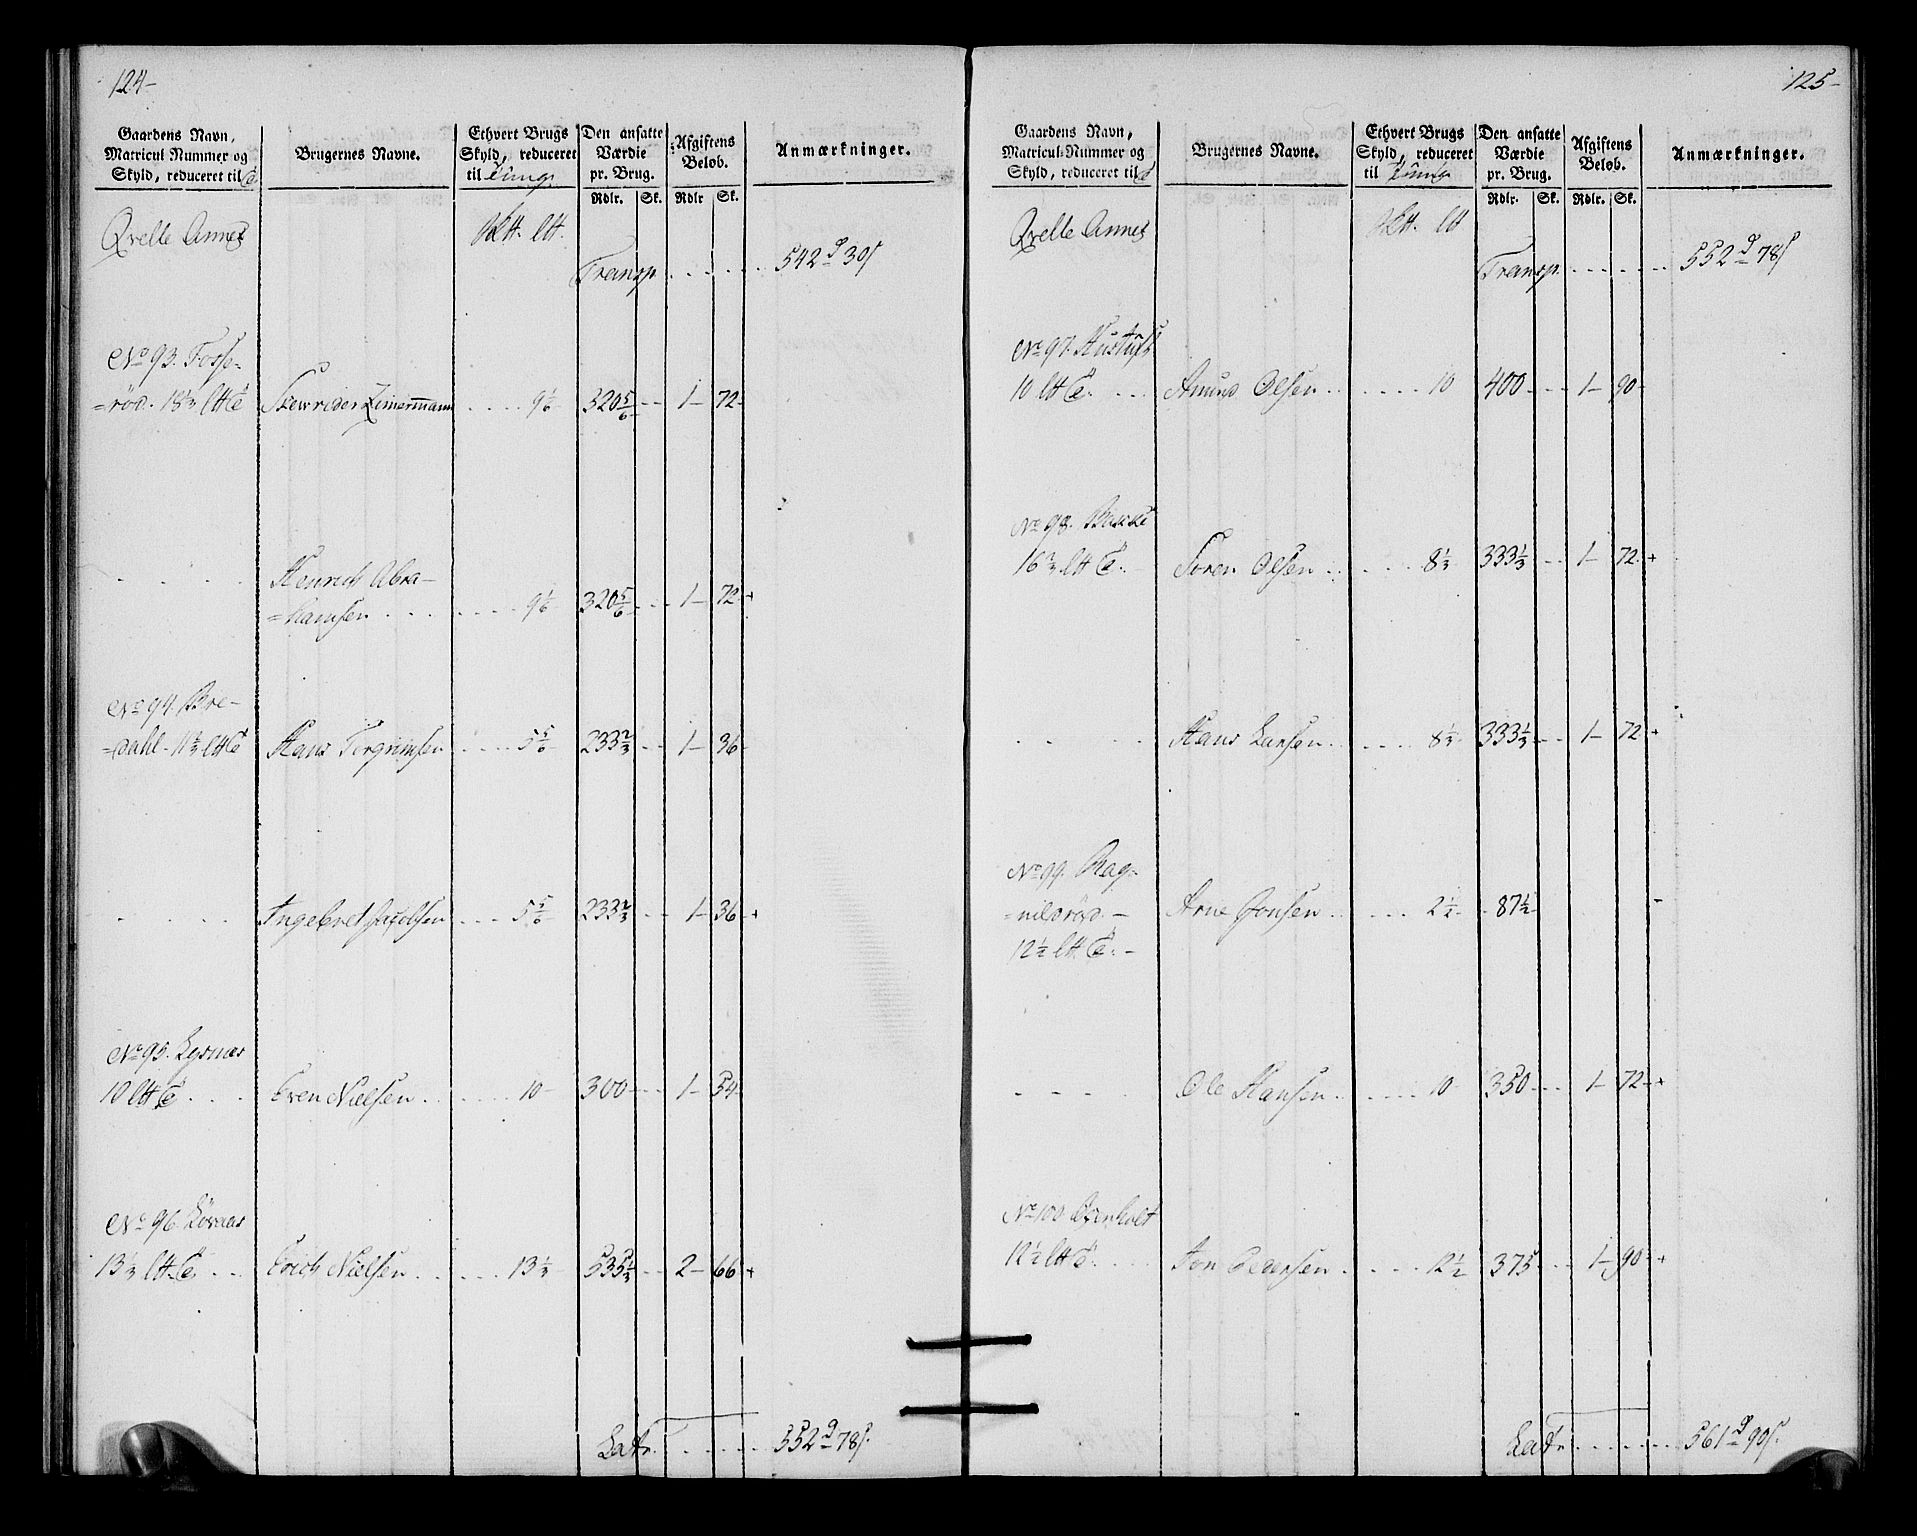 124-
Gaardens Navn,
Matricul Nummer og
Skyld, reduceret til
Brugernes Navne.
Ethvert Brugs
Skyld, reduceret
til Tunge
Den ansatte
Værdie
pr. Brug.
Afgiftens
Beløb.
Anmærkninger.
Rdlr. Sk. Rdlr Sk.
Qvelle Annex
Transp. 542 30
No 93. Fosse-
=röd. 18⅓ Skovrider Zimermann 9⅙ 320⅚ 1- 72-
Henrich Abra-
=hamsen 9⅙ 320⅚ 1- 72 +
No 94. Bre-
=dahl. 11⅔ Hans Torgrimsen 5⅚ 233⅔ 1- 36-
Ingebret Jacobsen 5⅚ 233⅔ 1- 36 +
No 95. Lysnæs
10 Even Nielsen 10- 300 1- 54-
No 96. Lövaas
13⅓ Erich Nielsen 13⅓ 535⅓ 2- 66 +
Latr. 552 78
125-
Gaardens Navn,
Matricul-Nummer og
Skyld, reduceret til
Brugernes Navne.
Ethvert Brugs
Skyld, reduceret
til Tunge
Den ansatte
Værdie
pr. Brug.
Afgiftens
Beløb.
Anmærkninger.
Rdlr. Sk. Rdlr. Sk.
Qvelle Annex
Transp. 552 78
No 97.
10 Amund Olsen 10 400 1- 90-
No 98. Bakke
16⅔ Soren Olsen 8⅓ 333⅓ 1- 72 +
Hans Larsen 8⅓ 333⅓ 1- 72 +
No 99. Rag-
=nildröd. - Arne Jonsen 2½ 87½ -
12½
Ole Hansen 10 350 1- 72 +
No 100
12½ Jon Pedersen 12½ 375 1- 90 +
Latr 561 90